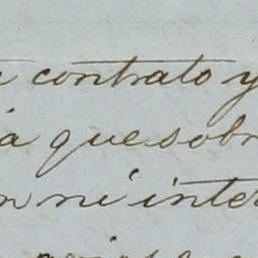 contrato y
que sobr
n ni inter